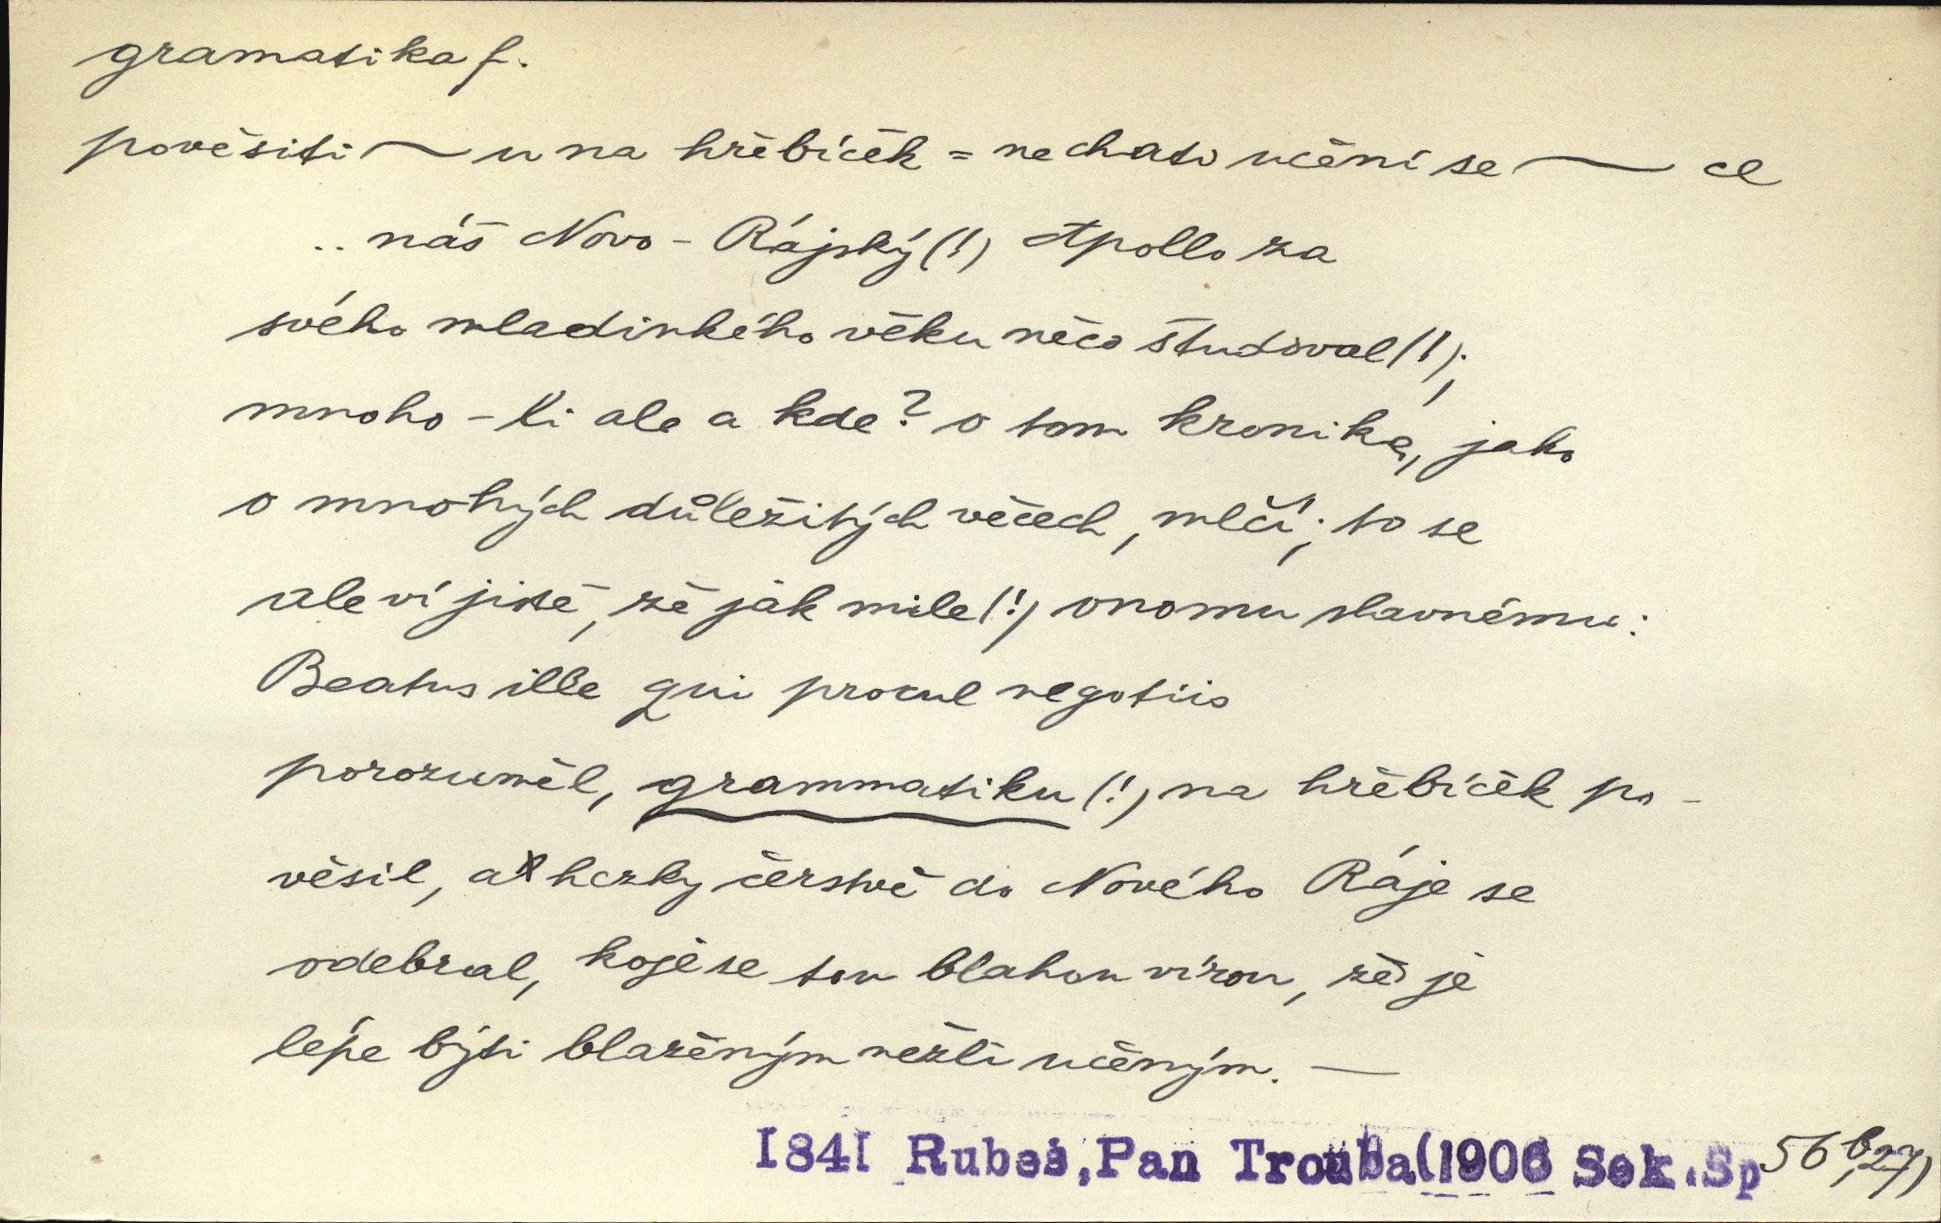 gramatika f.
pověsiti ~u na hřebíček = nechati učení se ~ cl
.. náš Novo-Rájský(!) Apollo za
svého mladinkého věku něco študoval(!);
mnoho-li ale a kde? o tom kronika, jako
o mnohých důležitých věcech, mlčí; to se
ale ví jistě, že jak mile(!) onomu slavnému:
Beatus ille qui procul negotiis
porozuměl, grammatiku(!) na hřebíček po-
věsil, a hezky čerstvě do Nového Ráje se
odebral, koje se tou blahou vírou, že je
lépe býti blaženým nežli učeným. —
1841 Rubeš, Pan Trouba (1906 Sek. Sp 56b,27)